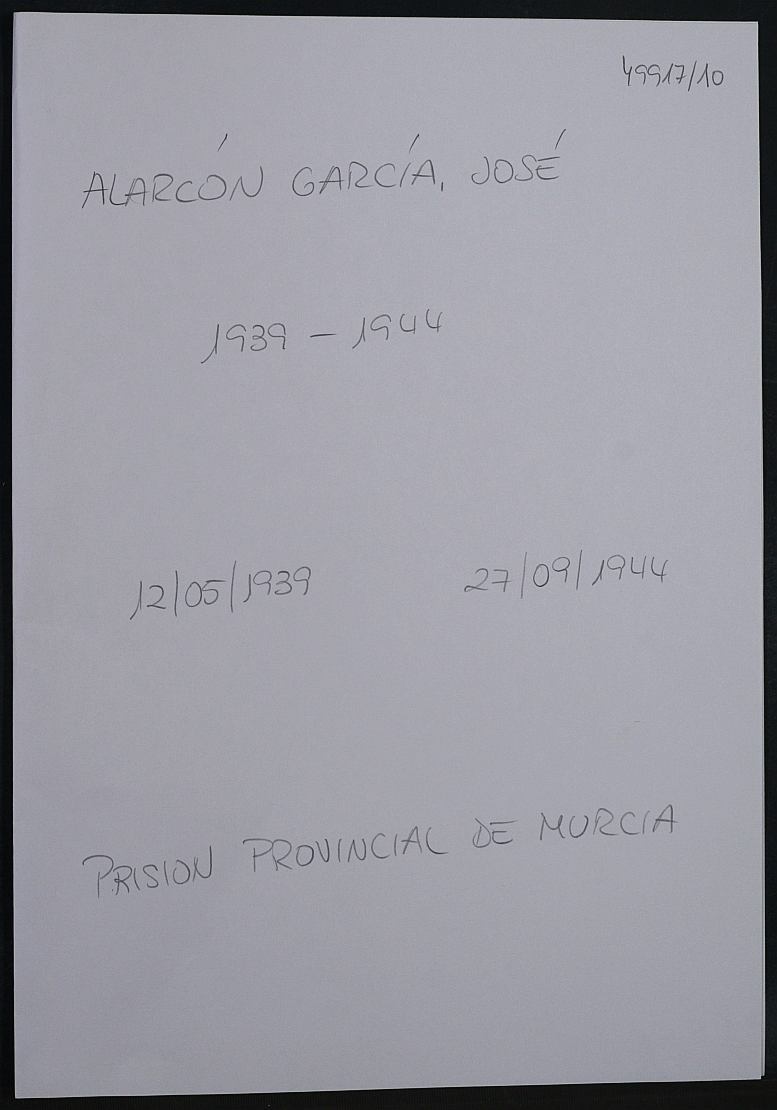 49917/10
ALARCÓN GARCÍA, JOSÉ
1939 - 1944
12/05/1939 27/09/1944
PRISION PROVINCIAL DE MURCIA